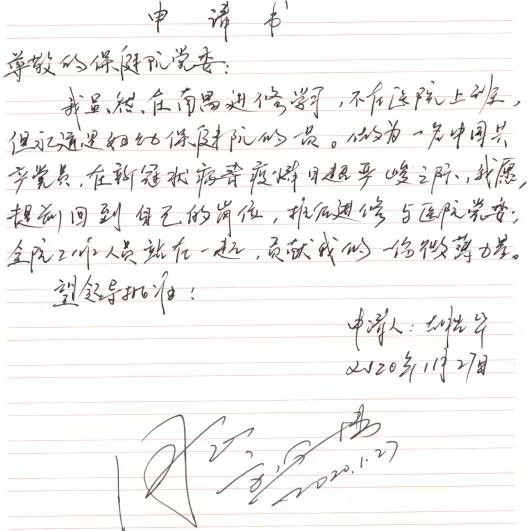 申请书
尊敬的保健院党委:
我虽然在南昌进修学习,不在医院上班,
但永远是妇幼保健院的一员。做为一名中国共
产党员,在新冠状病毒疫情日趋严峻之际,我愿
提前回到自己的岗位,推后进修与医院党委,
全院工作人员站在一起,贡献我的一份微薄力量。
望领导批准!
申请人:
2020年1月27日
同意
2020.1.27